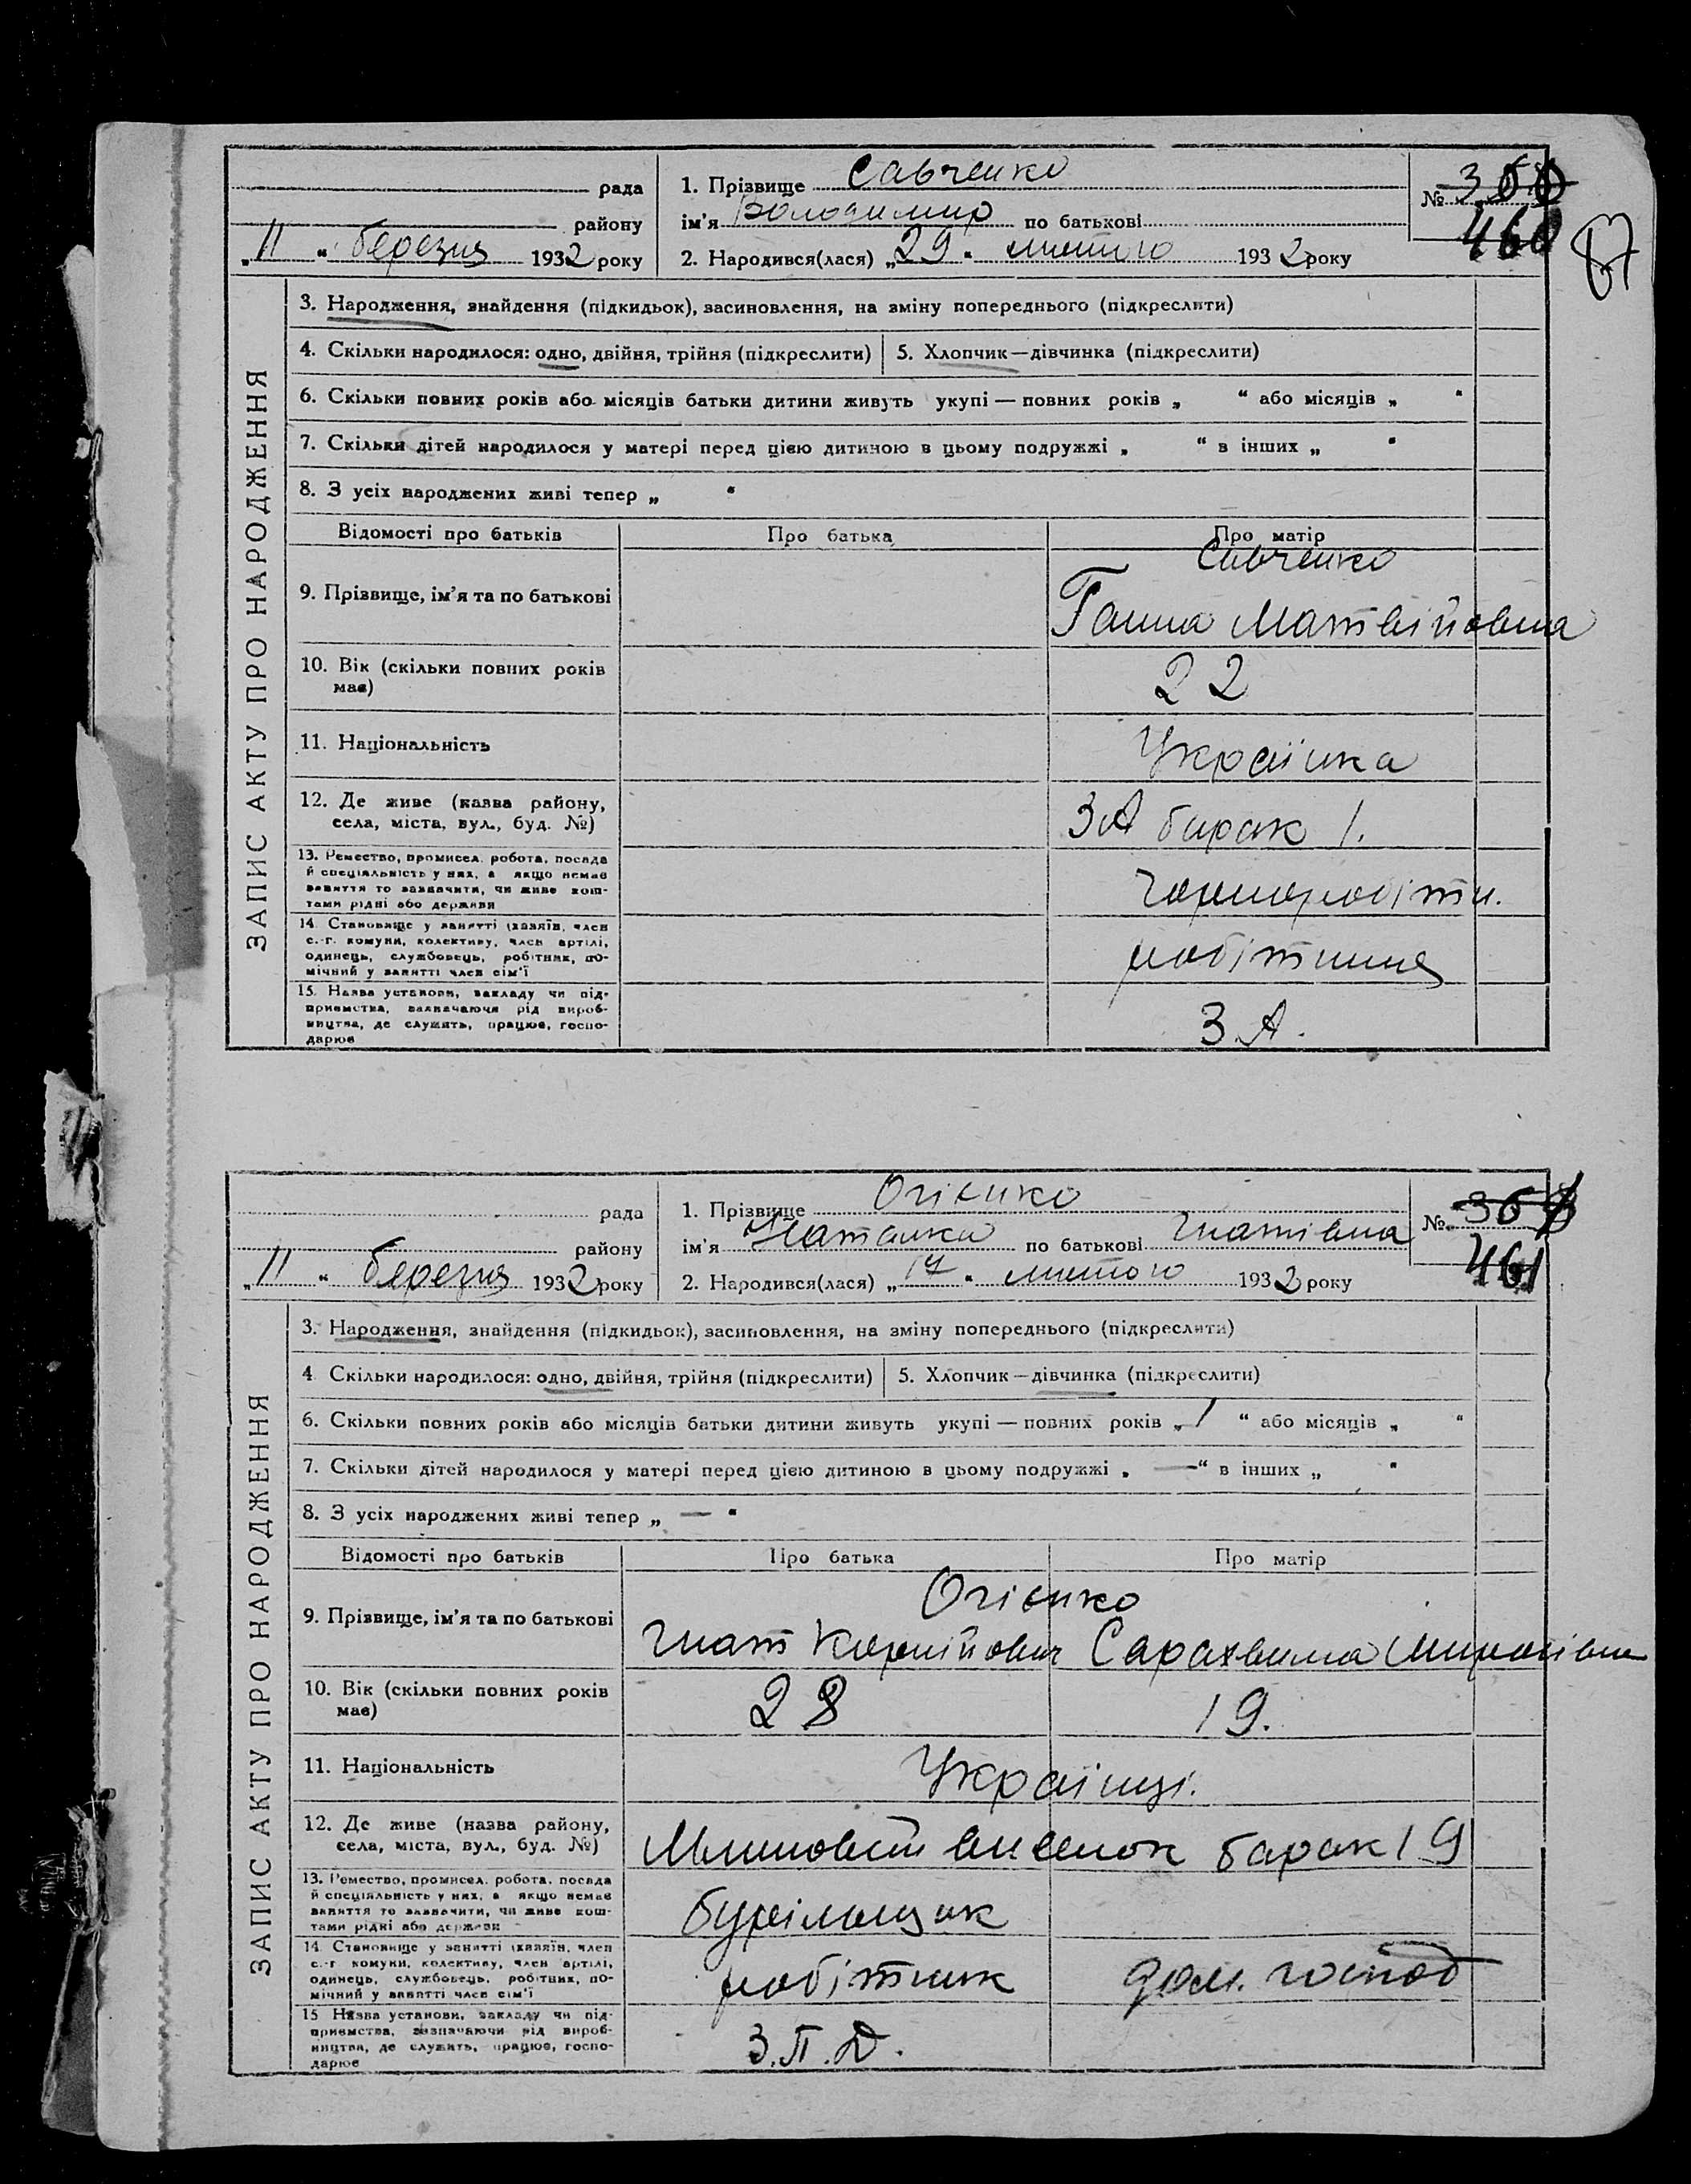 рада
району
„11“ березня 1932 року
1. Прізвище Савченко
ім’я Володимир по батькові
2. Народився(лася) „29“ лютого 1932 року
№ 360
460
87
ЗАПИС АКТУ ПРО НАРОДЖЕННЯ
3. Народження, знайдення (підкидьок), засиновлення, на зміну попереднього (підкреслити)
4. Скільки народилося: одно, двійня, трійня (підкреслити) 5. Хлопчик—дівчинка (підкреслити)
6. Скільки повних років або місяців батьки дитини живуть укупі — повних років „ “ або місяців „ “
7. Скільки дітей народилося у матері перед цією дитиною в цьому подружжі „ “ в інших „ “
8. З усіх народжених живі тепер „ “
Відомості про батьків Про батька Про матір
Савченко
9. Прізвище, ім’я та по батькові Ганна Матвійовна
10. Вік (скільки повних років
має)
22
11. Національність Українка
12. Де живе (назва району,
села, міста, вул., буд. №)
ЗА барак 1.
13. Ремество, промисел, робота, посада
й спеціяльність у них, а якщо немає
заняття то зазначити, чи живе кош-
тами рідні або держави
чорноробітн.
14. Становище у занятті (хазяїн, член
с.-г. комуни, колективу, член артілі,
одинець, службовець, робітник, по-
мічний у занятті член сім’ї
робітниця
15. Назва установи, закладу чи під-
приємства, зазначаючи рід вироб-
ництва, де служить, працює, госпо-
дарює
З.А.
рада
району
„11“ березня 1932 року
1. Прізвище Огієнко
ім’я Наталка по батькові Гнатівна
2. Народився(лася) „17“ лютого 1932 року
№ 361
461
ЗАПИС АКТУ ПРО НАРОДЖЕННЯ
3. Народження, знайдення (підкидьок), засиновлення, на зміну попереднього (підкреслити)
4 Скільки народилося: одно, двійня, трійня (підкреслити) 5. Хлопчик—дівчинка (підкреслити)
6. Скільки повних років або місяців батьки дитини живуть укупі — повних років „1“ або місяців „ “
7. Скільки дітей народилося у матері перед цією дитиною в цьому подружжі „ —“ в інших „ “
8. З усіх народжених живі тепер „ — “
Відомості про батьків Про батька Про матір
Огієнко
9. Прізвище, ім’я та по батькові Гнат Корнійович Сарахвима
10. Вік (скільки повних років
має)
28 19.
11. Національність Українці.
12. Де живе (назва району,
села, міста, вул., буд. №)
виселок барак 19
13. Ремество, промисел, робота, посада
й спеціяльність у них, а якщо немає
заняття то зазначити, чи живе кош-
тами рідні або держави
бурільщик
14. Становище у занятті (хазяїн, член
с.-г комуни, колективу, член артілі,
одинець, службовець, робітник, по-
мічний у занятті член сім’ї
робітник дом. господ
15 Назва установи, закладу чи під-
приємства, зазначаючи рід вироб-
ництва, де служить, працює, госпо-
дарює
З.П.Д.